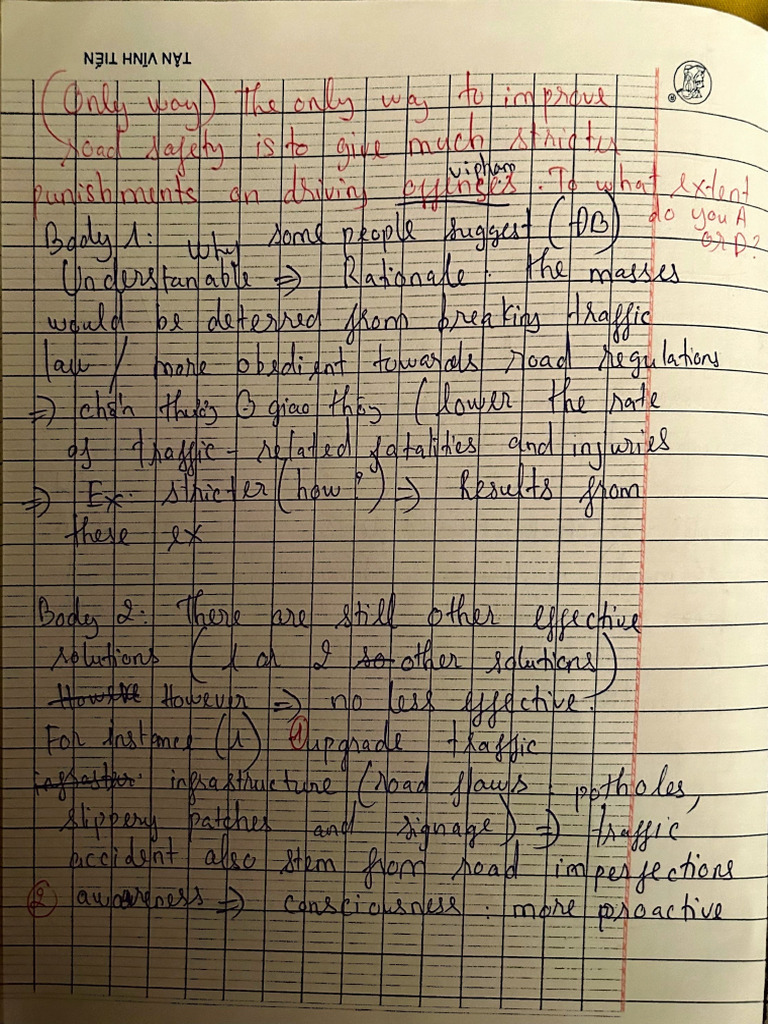 TÂN VĨNH TIẾN
(Only way) The only way to improve
road safety is to give much stricter
punishments on driving offenses. To what extent
vi phạm
do you A
or D?
Body 1: why some people suggest (TDB)
Understanable => Rationale: the masses
would be deterred from breaking traffic
law / more obedient towards road regulations
=> giao (lower the rate
of traffic-related fatalities and injuries
=> Ex: stricter (how?) => Results from
these ex
Body 2: There are still other effective
solutions (1 or 2 so other solutions)
However => no less effective.
For instance (1) ① upgrade traffic
infrastructure (road flaws: potholes,
slippery patches and signage) => traffic
accident also stem from road imperfections
② awareness => consciousness: more proactive